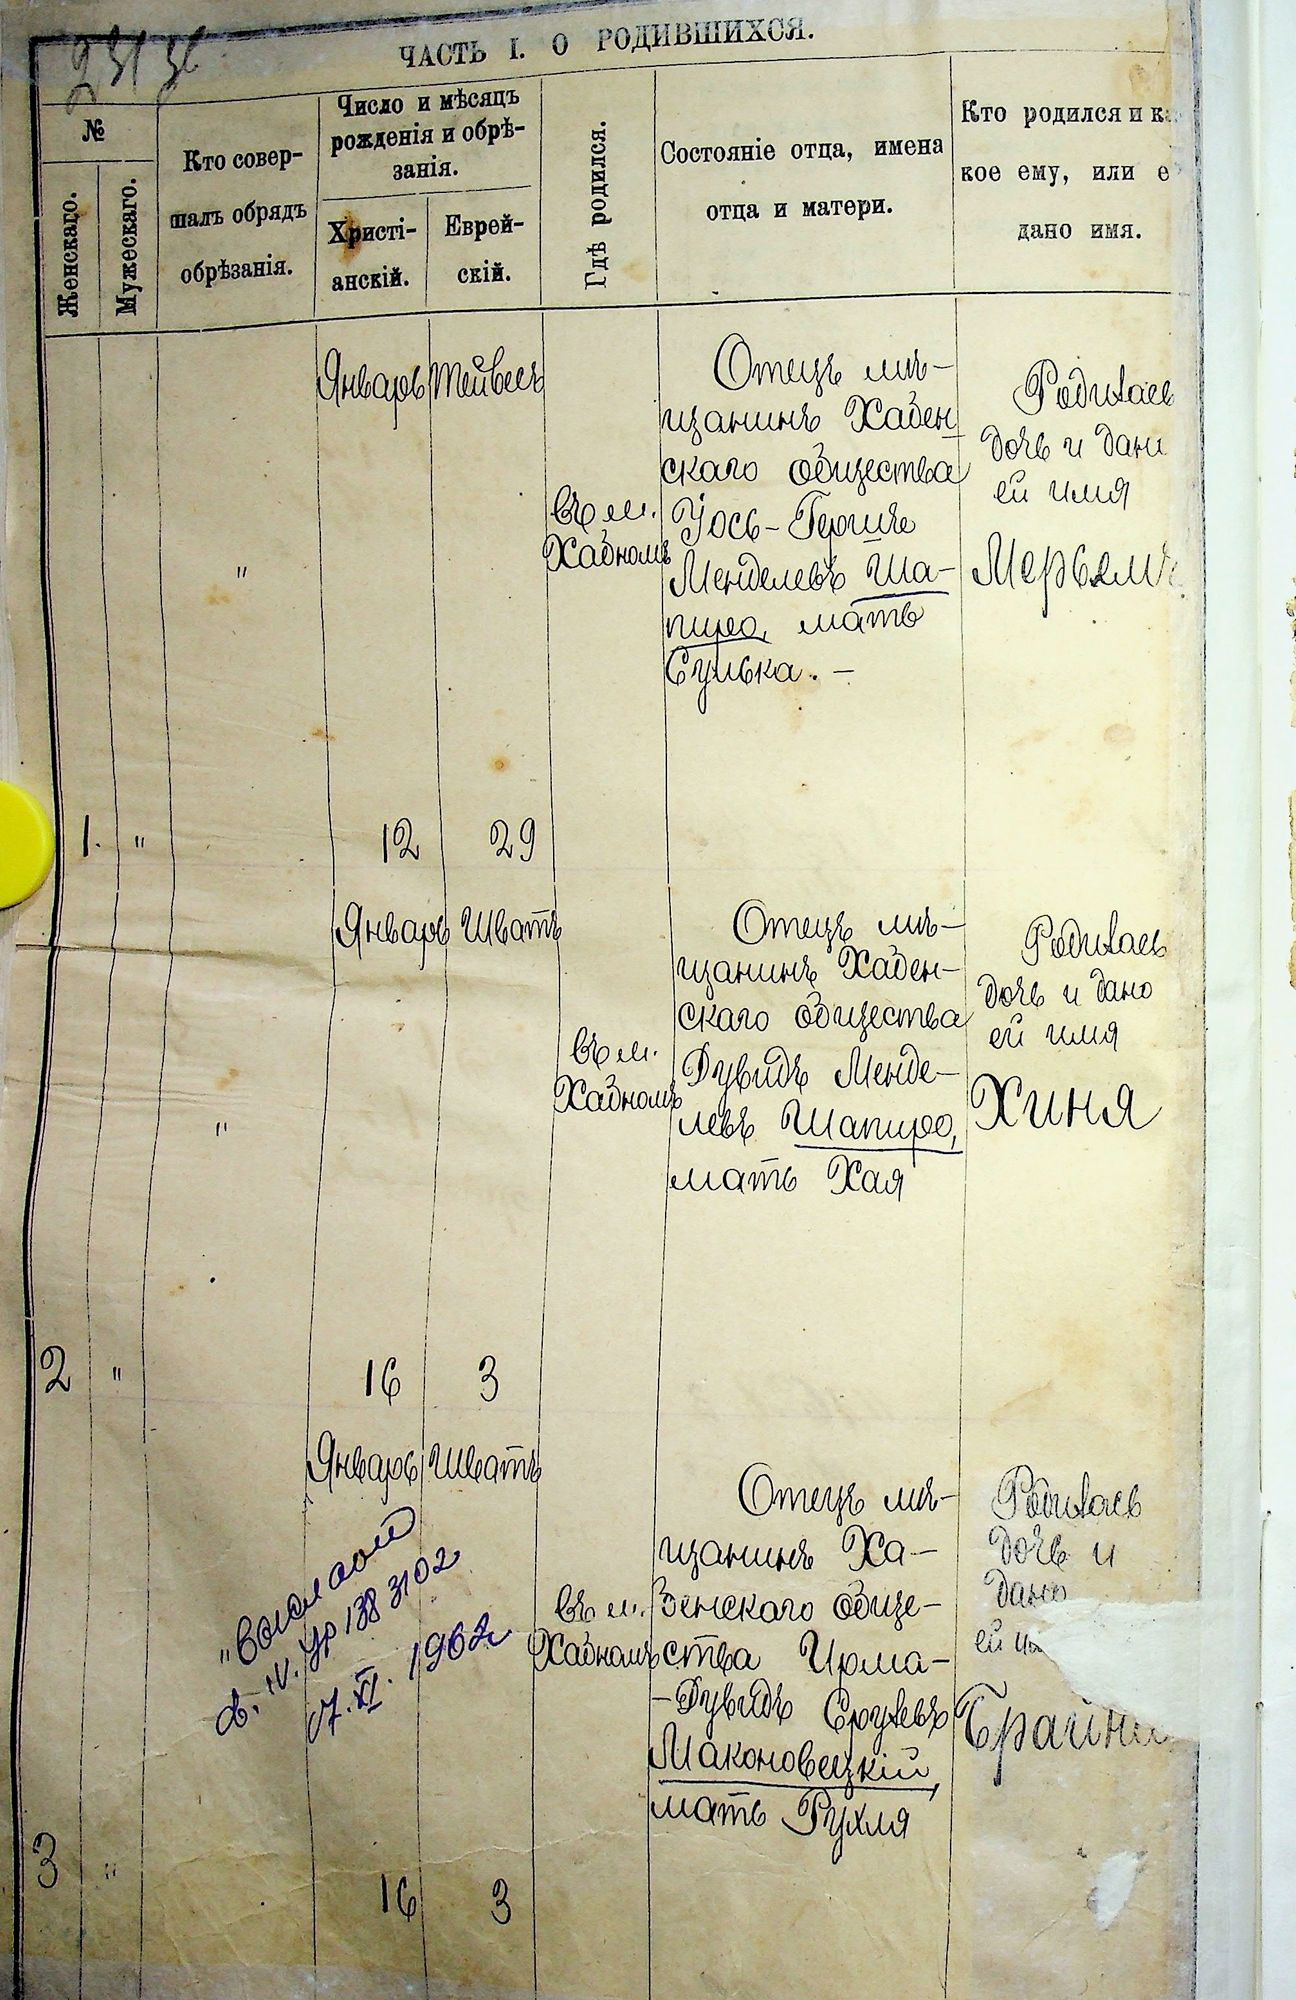 ЧАСТЬ I. О РОДИВШИХСЯ.
№
Женскаго.
Мужескаго.
Кто совер-
шалъ обрядъ
обрѣзанія.
Число и мѣсяцъ
рожденія и обрѣ-
занія.
Христі-
анскій.
Еврей-
скій.
Гдѣ родился.
Состояніе отца, имена
отца и матери.
Кто родился и ка
кое ему, или е
дано имя.
Январь
Тейвесъ
"
въ м.
Хабномъ
Отецъ мѣ-
щанинъ Хабен
скаго общества
Іось-Гершъ
Менделевъ Ша-
пиро, мать
Сулька. -
Родилась
дочь и дано
ей имя
Мерьямъ
1. " 12 29
Январь
Шватъ
"
въ м.
Хабномъ
Отецъ мѣ-
щанинъ Хабен-
скаго общества
Дувидъ Менде-
левъ Шапиро,
мать Хая
Родилась
дочь и дано
ей имя
Хиня
2 " 16 3
Январь
Шватъ
в. IV. УР 138 3102
17. XI. 1962г
въ м.
Хабномъ
Отецъ мѣ-
щанинъ Ха-
бенскаго обще-
ства Ирма-
-Дувидъ Срулевъ
Маконовецкій,
мать Рухля
Родилась
дочь и
дано
ей им
Брайна
3 " 16 3